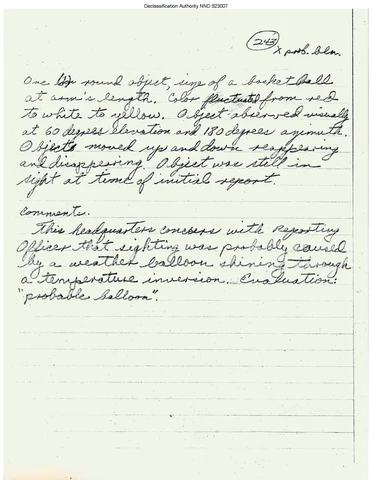 Declassification Authority NND 923007
243
X prob bln.
One round object, size of a basket ball
at arm's length. Color fluctuated from red
to white to yellow. Object observed visually
at 60 degrees elevation and 180 degrees azimuth.
Objects moved up and down reappearing
and disappearing. Object was still in
sight at time of initial report.
Comments.
This headquarters concurs with Reporting
Officer that sighting was probably caused
by a weather balloon shining through
a temperature inversion. Evaluation:
"probable balloon".